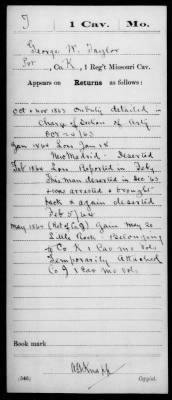 T 1 Cav. Mo.
George W. Taylor
Pvt, Co. K, 1 Reg't Missouri Cav.
Appears on
Returns as follows:
Oct & Nov 1863 On duty detailed in
Charge of Section of Arty
Oct 24/63
Jan 1864 Loss Jan 18
New Madrid - Deserted
Feb 1864 Loss Reported in Feby
This man deserted in Dec 63
was arrested & brought
back & again deserted
Feb 5/64
May 1864 (Ret of Co J) Gain May 20
Little Rock - Belonging
to Co K 1 Cav Mo Vols
Temporarily Attached
Co J 1 Cav Mo Vols
Book mark
(546) Copyist.